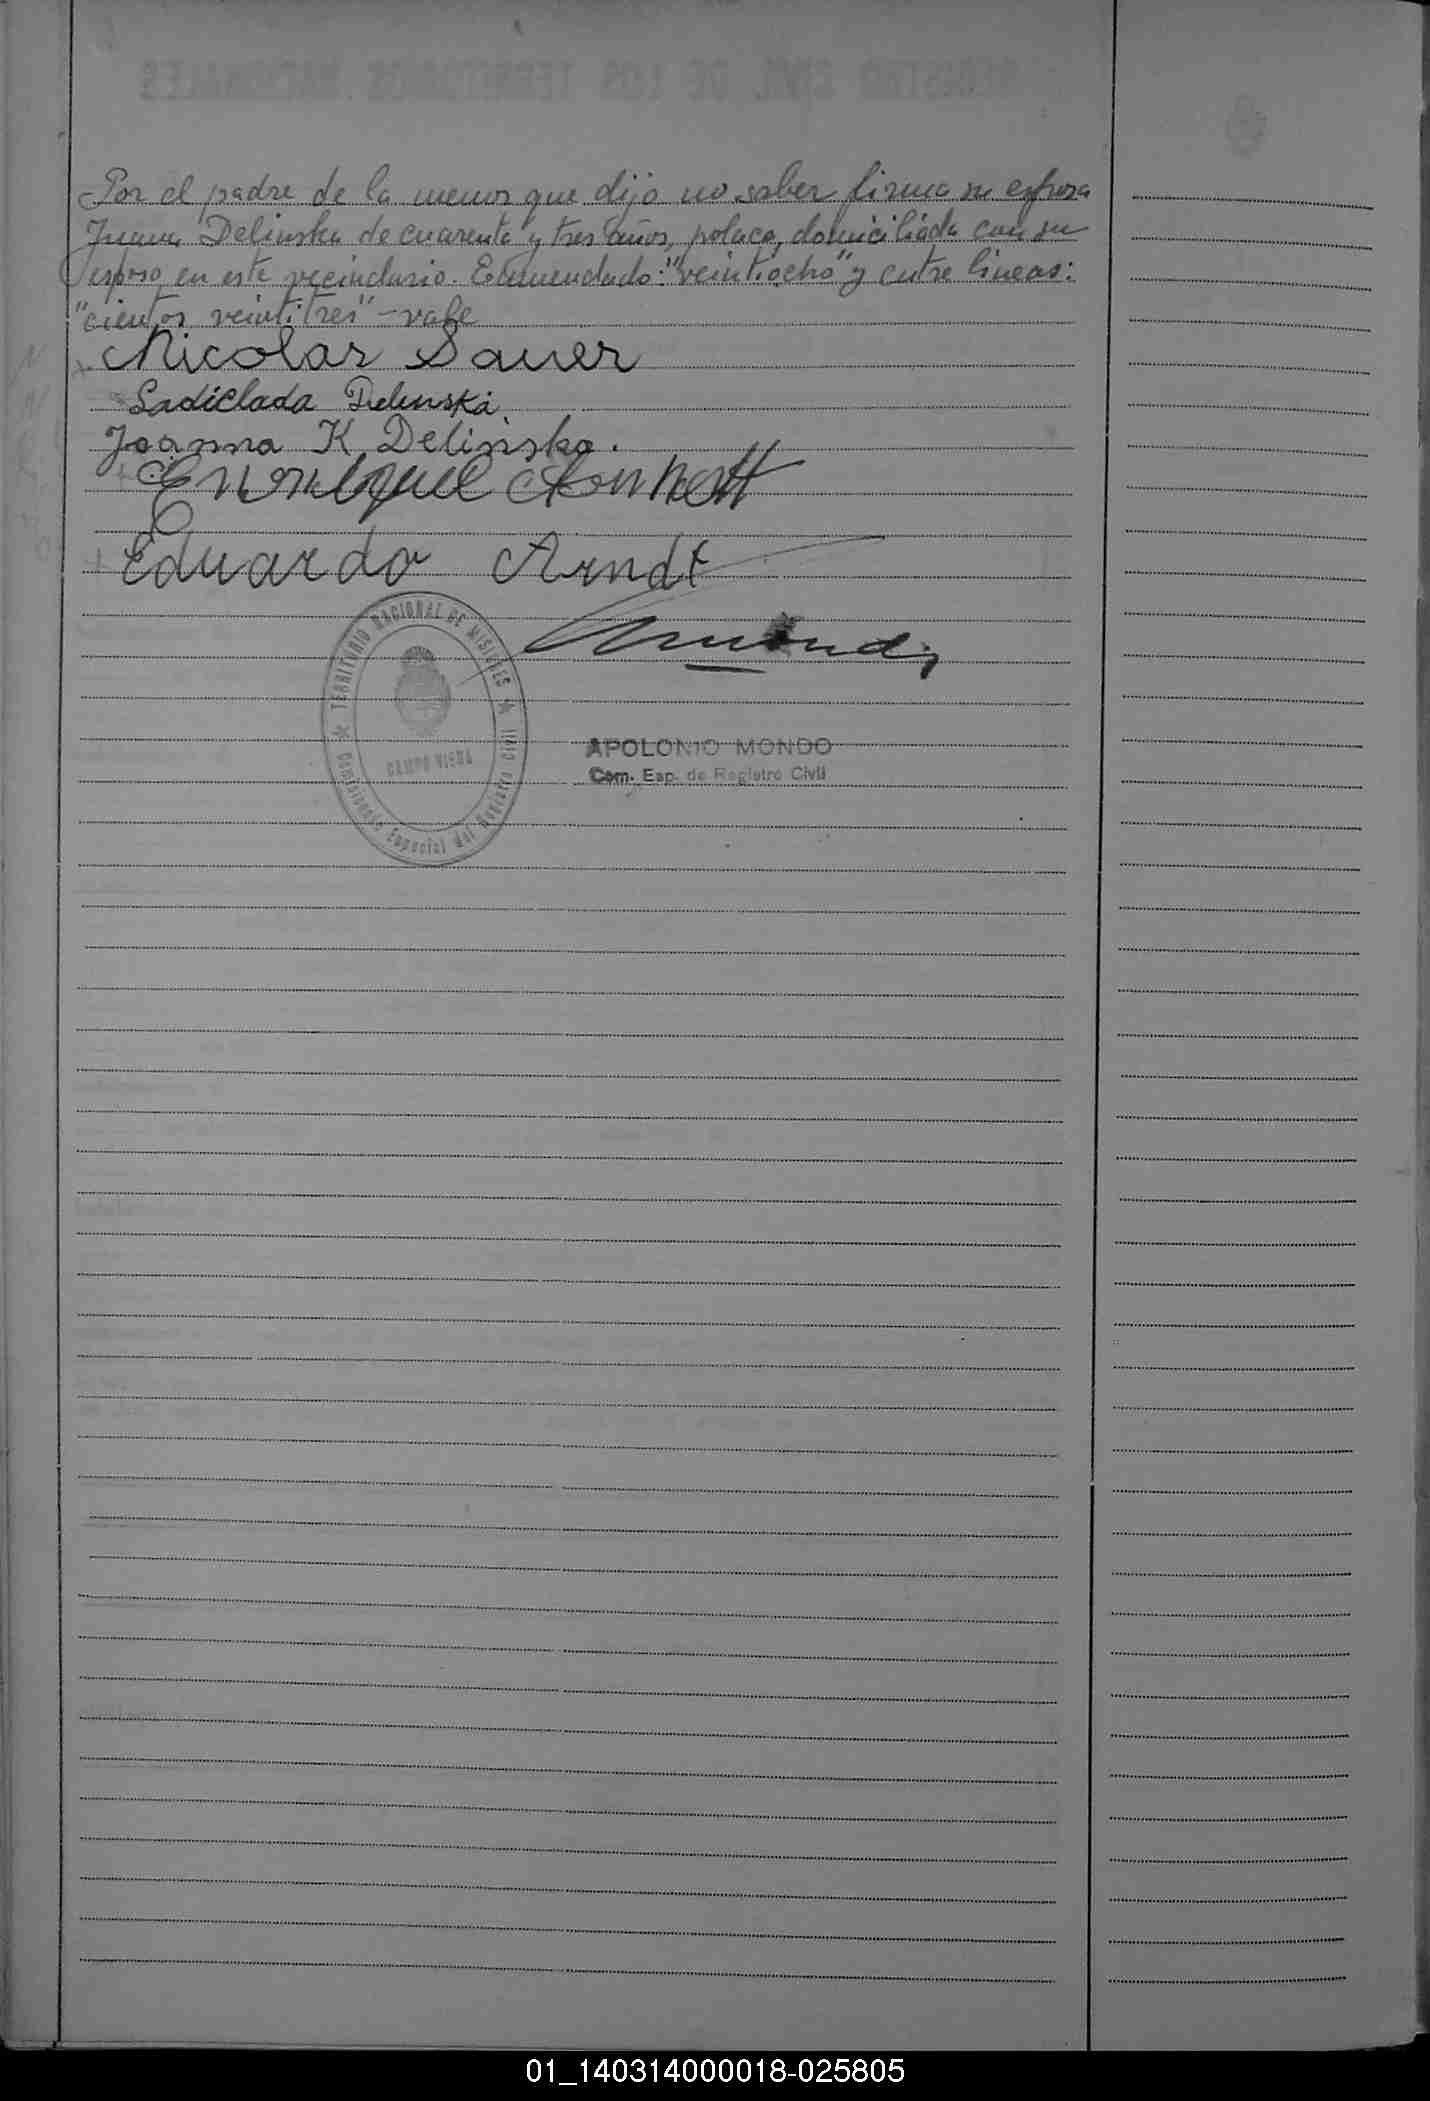 Por el padre de la menor que dijo no saber firma su esposa
Juana Delinska de cuarenta y tres años, polaca, domiciliada con su
esposo en este vecindario. Enmendado: "veintiocho" y entre lineas:
"cientos veintitres" - vale
Nicolas Sauer
Ladiclada Delinska.
Joanna K Delinska.
Eduardo Arndt
TERRITORIO NACIONAL DE MISIONES
CAMPO VIERA
Comisionado Especial del Registro Civil
APOLONIO MONDO
Com. Esp. de Registro Civil
01_140314000018-025805